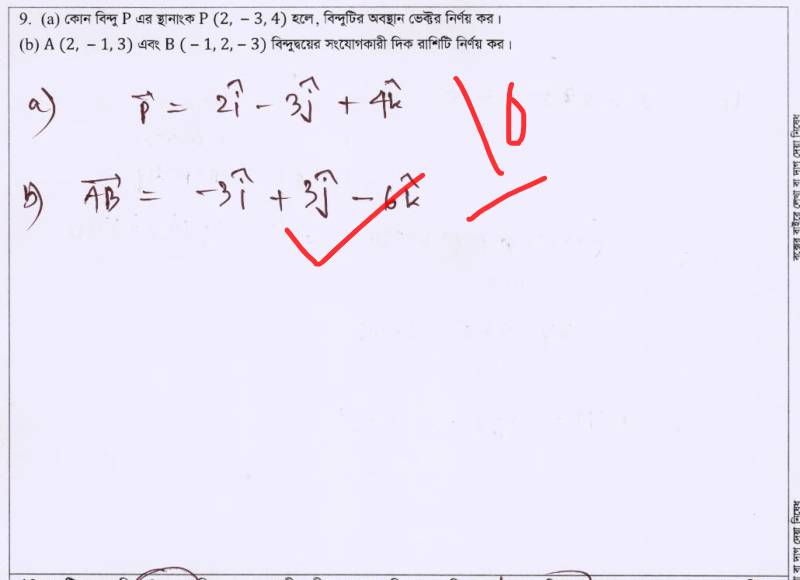 9. (a) কোন বিন্দু P এর স্থানাংক P (2, − 3, 4) হলে, বিন্দুটির অবস্থান ভেক্টর নির্ণয় কর।
(b) A (2, − 1, 3) এবং B ( − 1, 2, − 3) বিন্দুদ্বয়ের সংযোগকারী দিক রাশিটি নির্ণয় কর।
a) \vec{P} = 2î − 3ĵ + 4k̂
b) \vec{AB} = −3î + 3ĵ − 6k̂
বক্সের বাইরে লেখা বা দাগ দেয়া নিষেধ
বা দাগ দেয়া নিষেধ